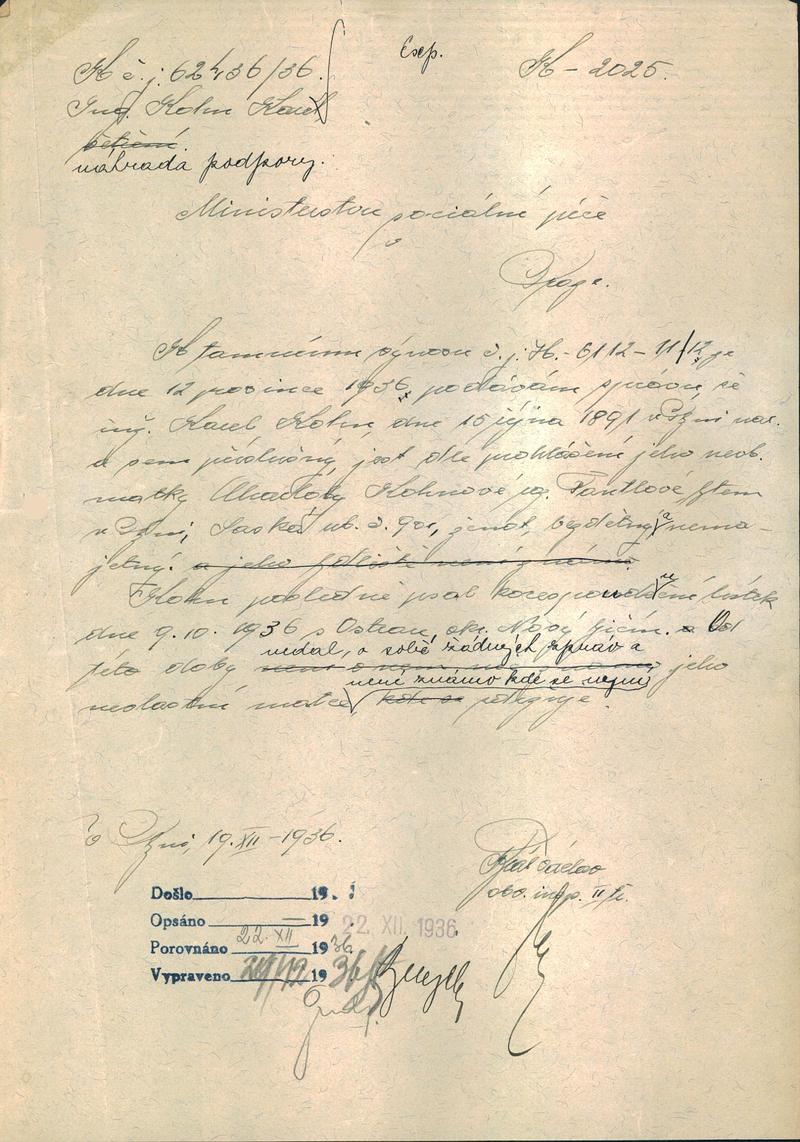 K č. j. 62436/36. Exp. K – 2025.
Ing. Kohn Karel
náhrada podpory.
Ministerstvu sociální péče
v
Praze.
K tamnímu výnosu č. j. H. - 6112 - 11/12 ze
dne 12 prosince 1936, podávám zprávu, že
ing. Karel Kohn, dne 15 října 1891 v Plzni nar.
a sem příslušný, jest dle prohlášení jeho neob.
matky Kohnové roz. Fantlové, bytem
v Plzni, Saská ul. č. ženat, bezdětný a nema-
jetný. a jeho bydliště není známo.
Kohn posledně psal korespondenční lístek
dne 9.10. 1936 z okr. Nový Jičín. Od
nedal o sobě žádných zpráv a
této doby jeho
není známo kde se nyní
nevlastní matce, kde se zdržuje.
V Plzni, 19. XII – 1936.
Václav
obv. insp. II tř.
Došlo 19
Opsáno — 19 22. XII. 1936
Porovnáno 22. XII 1936
Vypraveno 1936